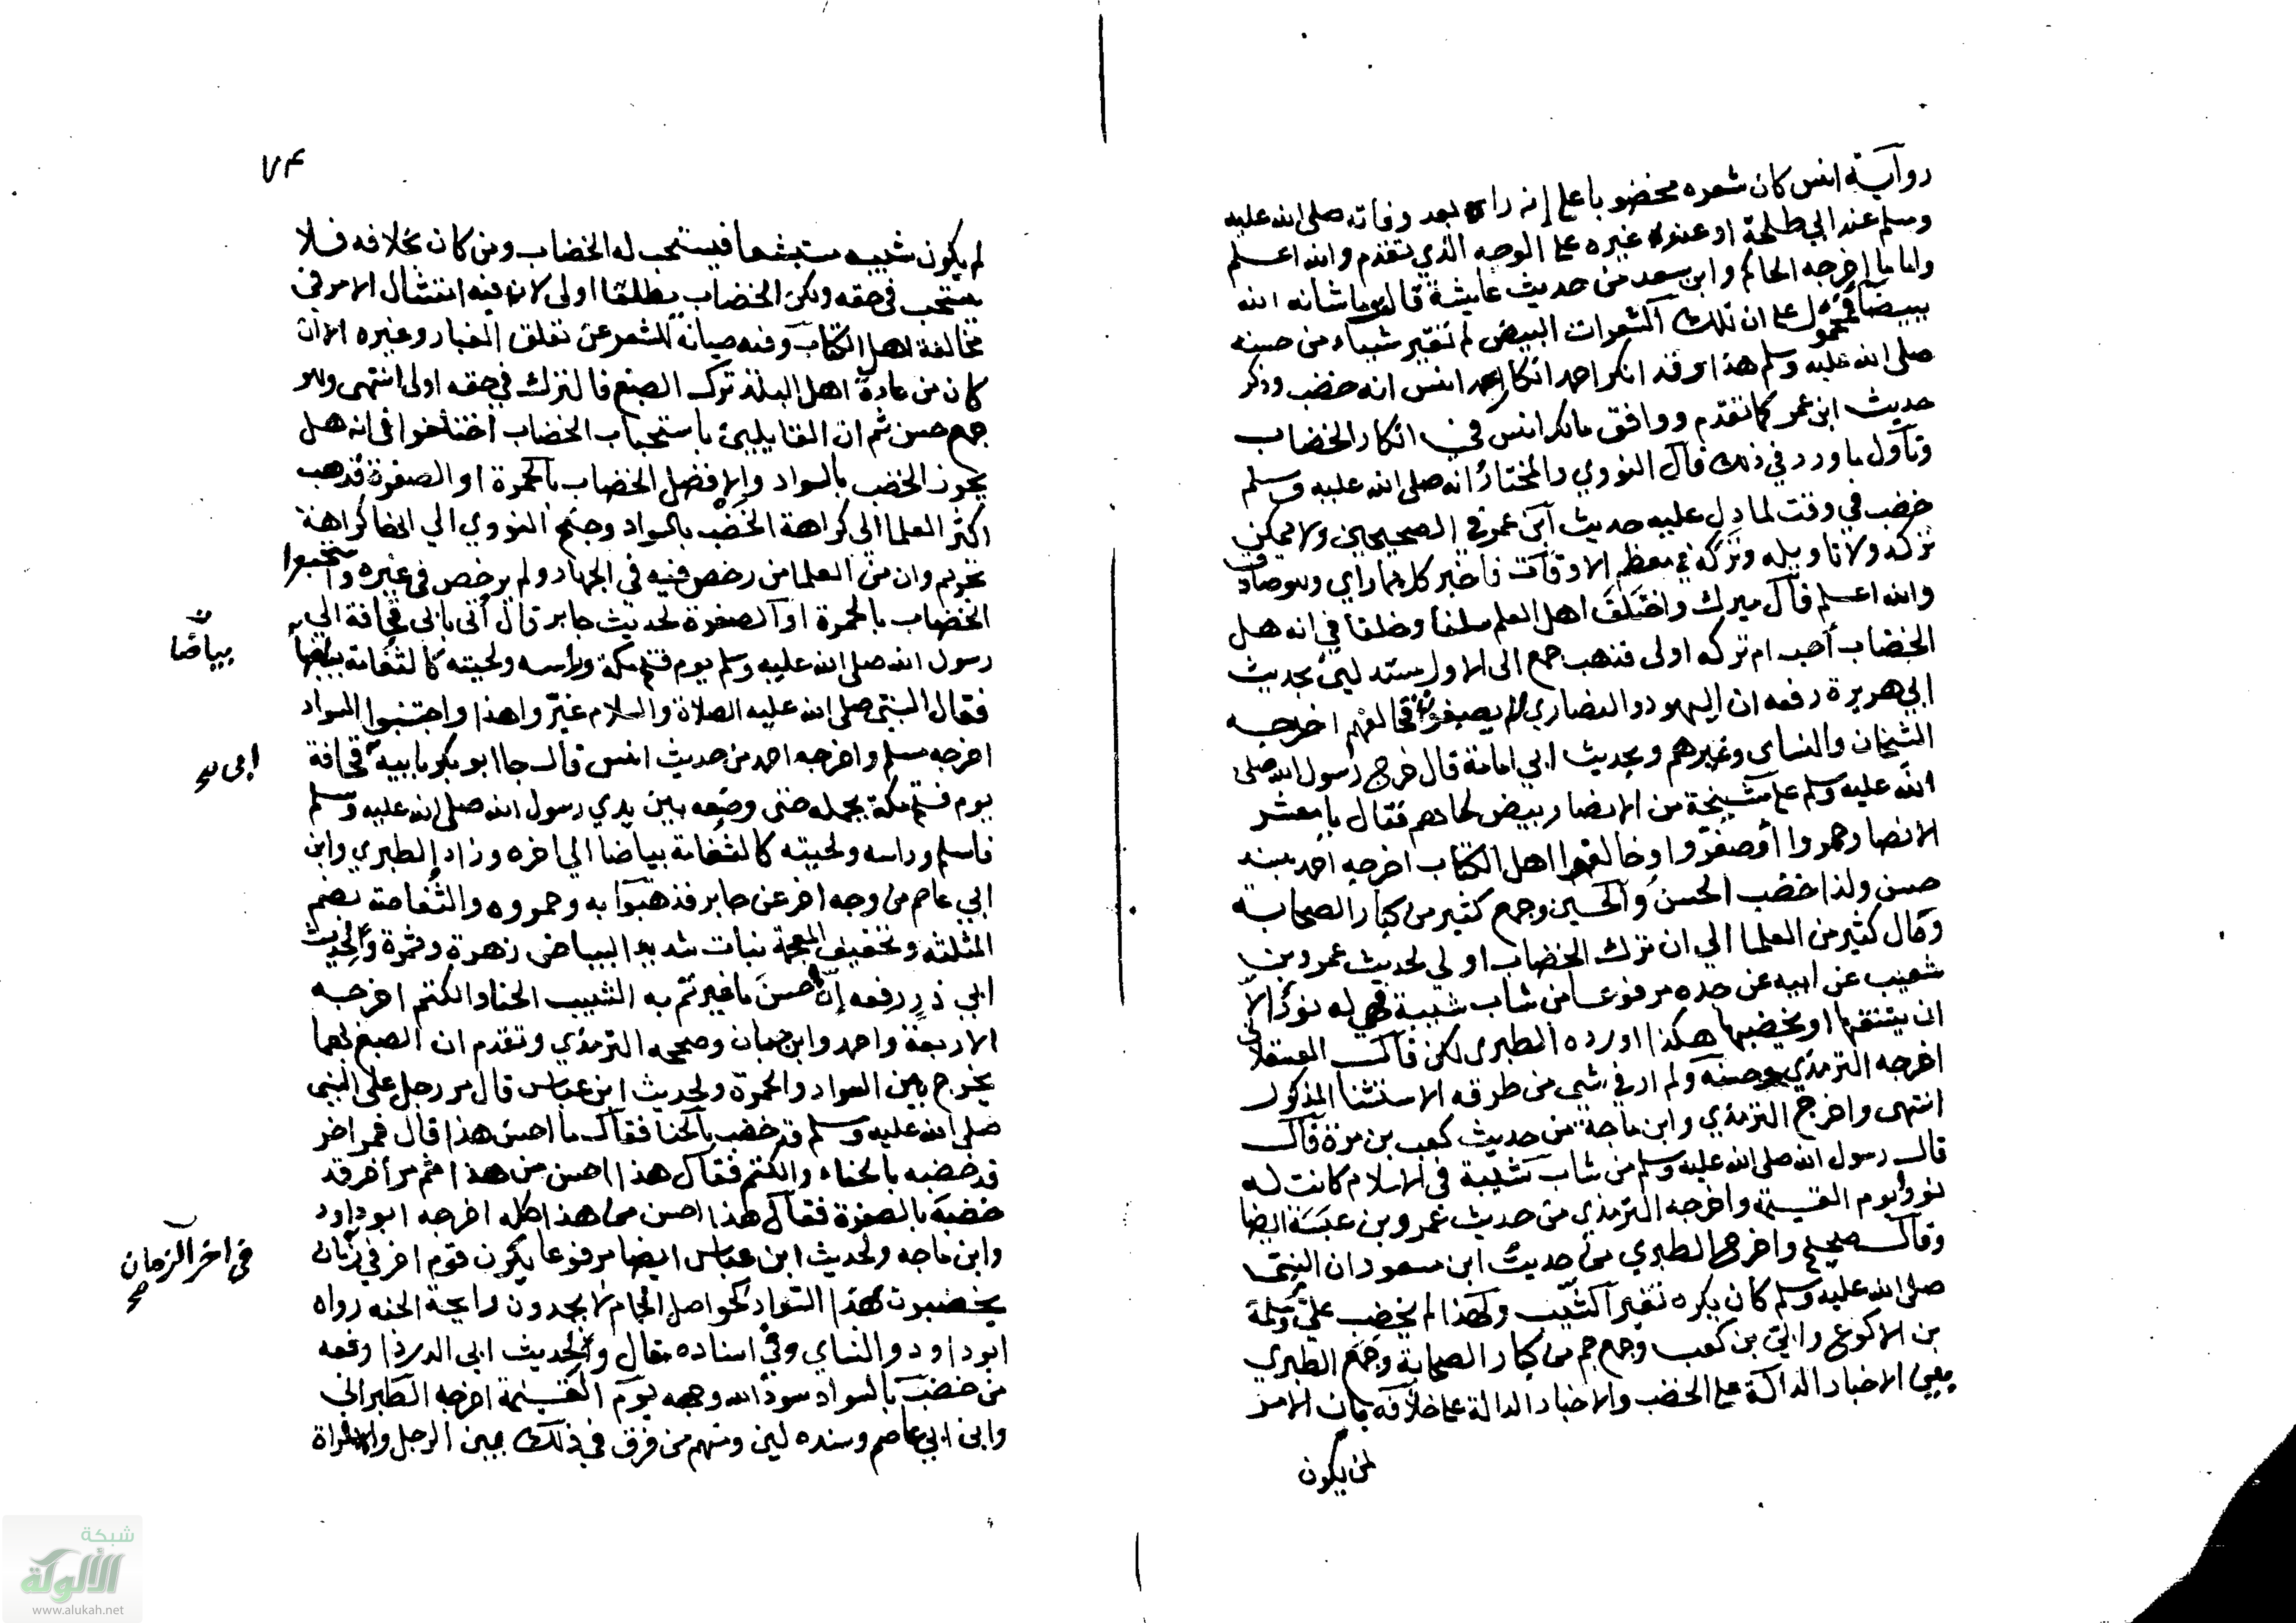 رواية انس كان شعره مخضوبا على انه راه بعد وفاته صلى الله عليه
وسلم عند ابي طلحة او عند غيره على الوجه الذي تقدم والله اعلم
واما ما اخرجه الحاكم وابن سعد من حديث عايشة قالت ما شانه الله
ببيضا فمحمول على ان تلك الشعرات البيض لم تغير شياء من حسنه
صلى الله عليه وسلم هذا وقد انكر احمد انكار انس انه خضب وذكر
حديث ابن عمر كما تقدم ووافق مالك انس في انكار الخضاب
وتاول ما ورد في ذلك قال النووي والمختار انه صلى الله عليه وسلم
خضب في وقت لما دل عليه حديث ابن عمر في الصحيحين ولا يمكن
تركه ولا تاويله وتركه في معظم الاوقات فاخبر كل بما راي وهو صادق
والله اعلم قال ميرك واختلف اهل العلم سلفا وخلفا في انه هل
الخضاب أحب ام تركه اولى فذهب جمع الى الاول مستدلين بحديث
ابي هريرة رفعه ان اليهود والنصاري لا يصبغون فخالفوهم اخرجه
الشيخان والنساى وغيرهم وبحديث ابي امامة قال خرج رسول الله صلى
الله عليه وسلم على مشيخة من الانصار بيض لحاهم فقال يا معشر
الانصار حمروا أو صفروا وخالفوا اهل الكتاب اخرجه احمد بسند
حسن ولذا خضب الحسن والحسين وجمع كثير من كبار الصحابة
وقال كثير من العلما الي ان ترك الخضاب اولي لحديث عمرو بن
شعيب عن ابيه عن جده مرفوعا من شاب شيبة فهي له نور الا
ان ينتفها او يخضبها هكذا اورده الطبرى لكن قال العسقلاني
اخرجه الترمذي وحسنه ولم ار في شي من طرقه الاستثنا المذكور
انتهى واخرج الترمذي وابن ماجة من حديث كعب بن مرة قال
قال رسول الله صلى الله عليه وسلم من شاب شيبة في الاسلام كانت له
نورا يوم القيمة واخرجه الترمذي من حديث عمرو بن عبسة ايضا
وقال صحيح واخرج الطبري من حديث ابن مسعود ان النبي
صلى الله عليه وسلم كان يكره تغير الشيب ولهذا لم يخضب علي وسلمة
بن الاكوع وابي بن كعب وجمع جم من كبار الصحابة وجمع الطبري
بين الاخبار الدالة على الخضب والاخبار الدالة على خلافه بان الامر
لمن يكون
٧٤
لم يكون شيبه مستبشعا فيستحب له الخضاب ومن كان بخلافه فلا
يستحب في حقه ولكن الخضاب مطلقا اولى لان فيه امتثال الامر في
مخالفة اهل الكتاب وفيه صيانة للشعر عن تعلق الغبار وغيره الا ان
كان من عادة اهل البلد ترك الصبغ فالترك في حقه اولى انتهى وهو
جمع حسن ثم ان القايلين باستحباب الخضاب اختلفوا في انه هل
يجوز الخضب بالسواد والافضل الخضاب بالحمرة او الصفرة فذهب
اكثر العلما الى كراهة الخضب بالسواد وجنح النووي الي انها كراهة
تحريم وان من العلما من رخص فيه في الجهاد ولم يرخص في غيره واستحبوا
الخضاب بالحمرة او الصفرة لحديث جابر قال أتى بابى قحافة الى
رسول الله صلى الله عليه وسلم يوم فتح مكة وراسه ولحيته كالثغامة بياضا
بياضًا
فقال النبي صلى الله عليه الصلاة والسلام غيروا هذا واجتنبوا السواد
اخرجه مسلم واخرجه احمد من حديث انس قال جا ابو بكر بابيه قحافة
ابى صح
يوم فتح مكة يحمله حتى وضعه بين يدي رسول الله صلى الله عليه وسلم
فاسلم وراسه ولحيته كالثغامة بياضا الي اخره وزاد الطبري وابن
ابي عاصم من وجه اخر عن جابر فذهبوا به وحمروه والثغامة بضم
المثلثه وتخفيف المعجمة نبات شديد البياض زهرة وثمرة ولحديث
ابي ذر رفعه إن احسن ما غيرتم به الشيب الحنا والكتم اخرجه
الاربعة واحمد وابن حبان وصححه الترمذي وتقدم ان الصبغ بهما
يخرج بين السواد والحمرة ولحديث ابن عباس قال مر رجل على النبى
صلى الله عليه وسلم قد خضب بالحنا فقال ما احسن هذا قال فمر اخر
قد خضبه بالحناء والكتم فقال هذا احسن من هذا ثم مر أخر قد
خضبه بالصفرة فقال هذا احسن من هذا كله اخرجه ابو داود
وابن ماجه ولحديث ابن عباس ايضا مرفوعا يكون قوم اخر في زمان
في اخر الزمان صح
يخضبون بهذا السواد كحواصل الحمام لا يجدون رايحة الجنه رواه
ابو داود والنساي وفي اسناده مقال ولحديث ابي الدردا رفعه
من خضب بالسواد سود الله وجهه يوم القيمة اخرجه الطبراني
وابن ابي عاصم وسنده لين ومنهم من فرق في ذلك بين الرجل والمراة
شبكة
الألوكة
www.alukah.net